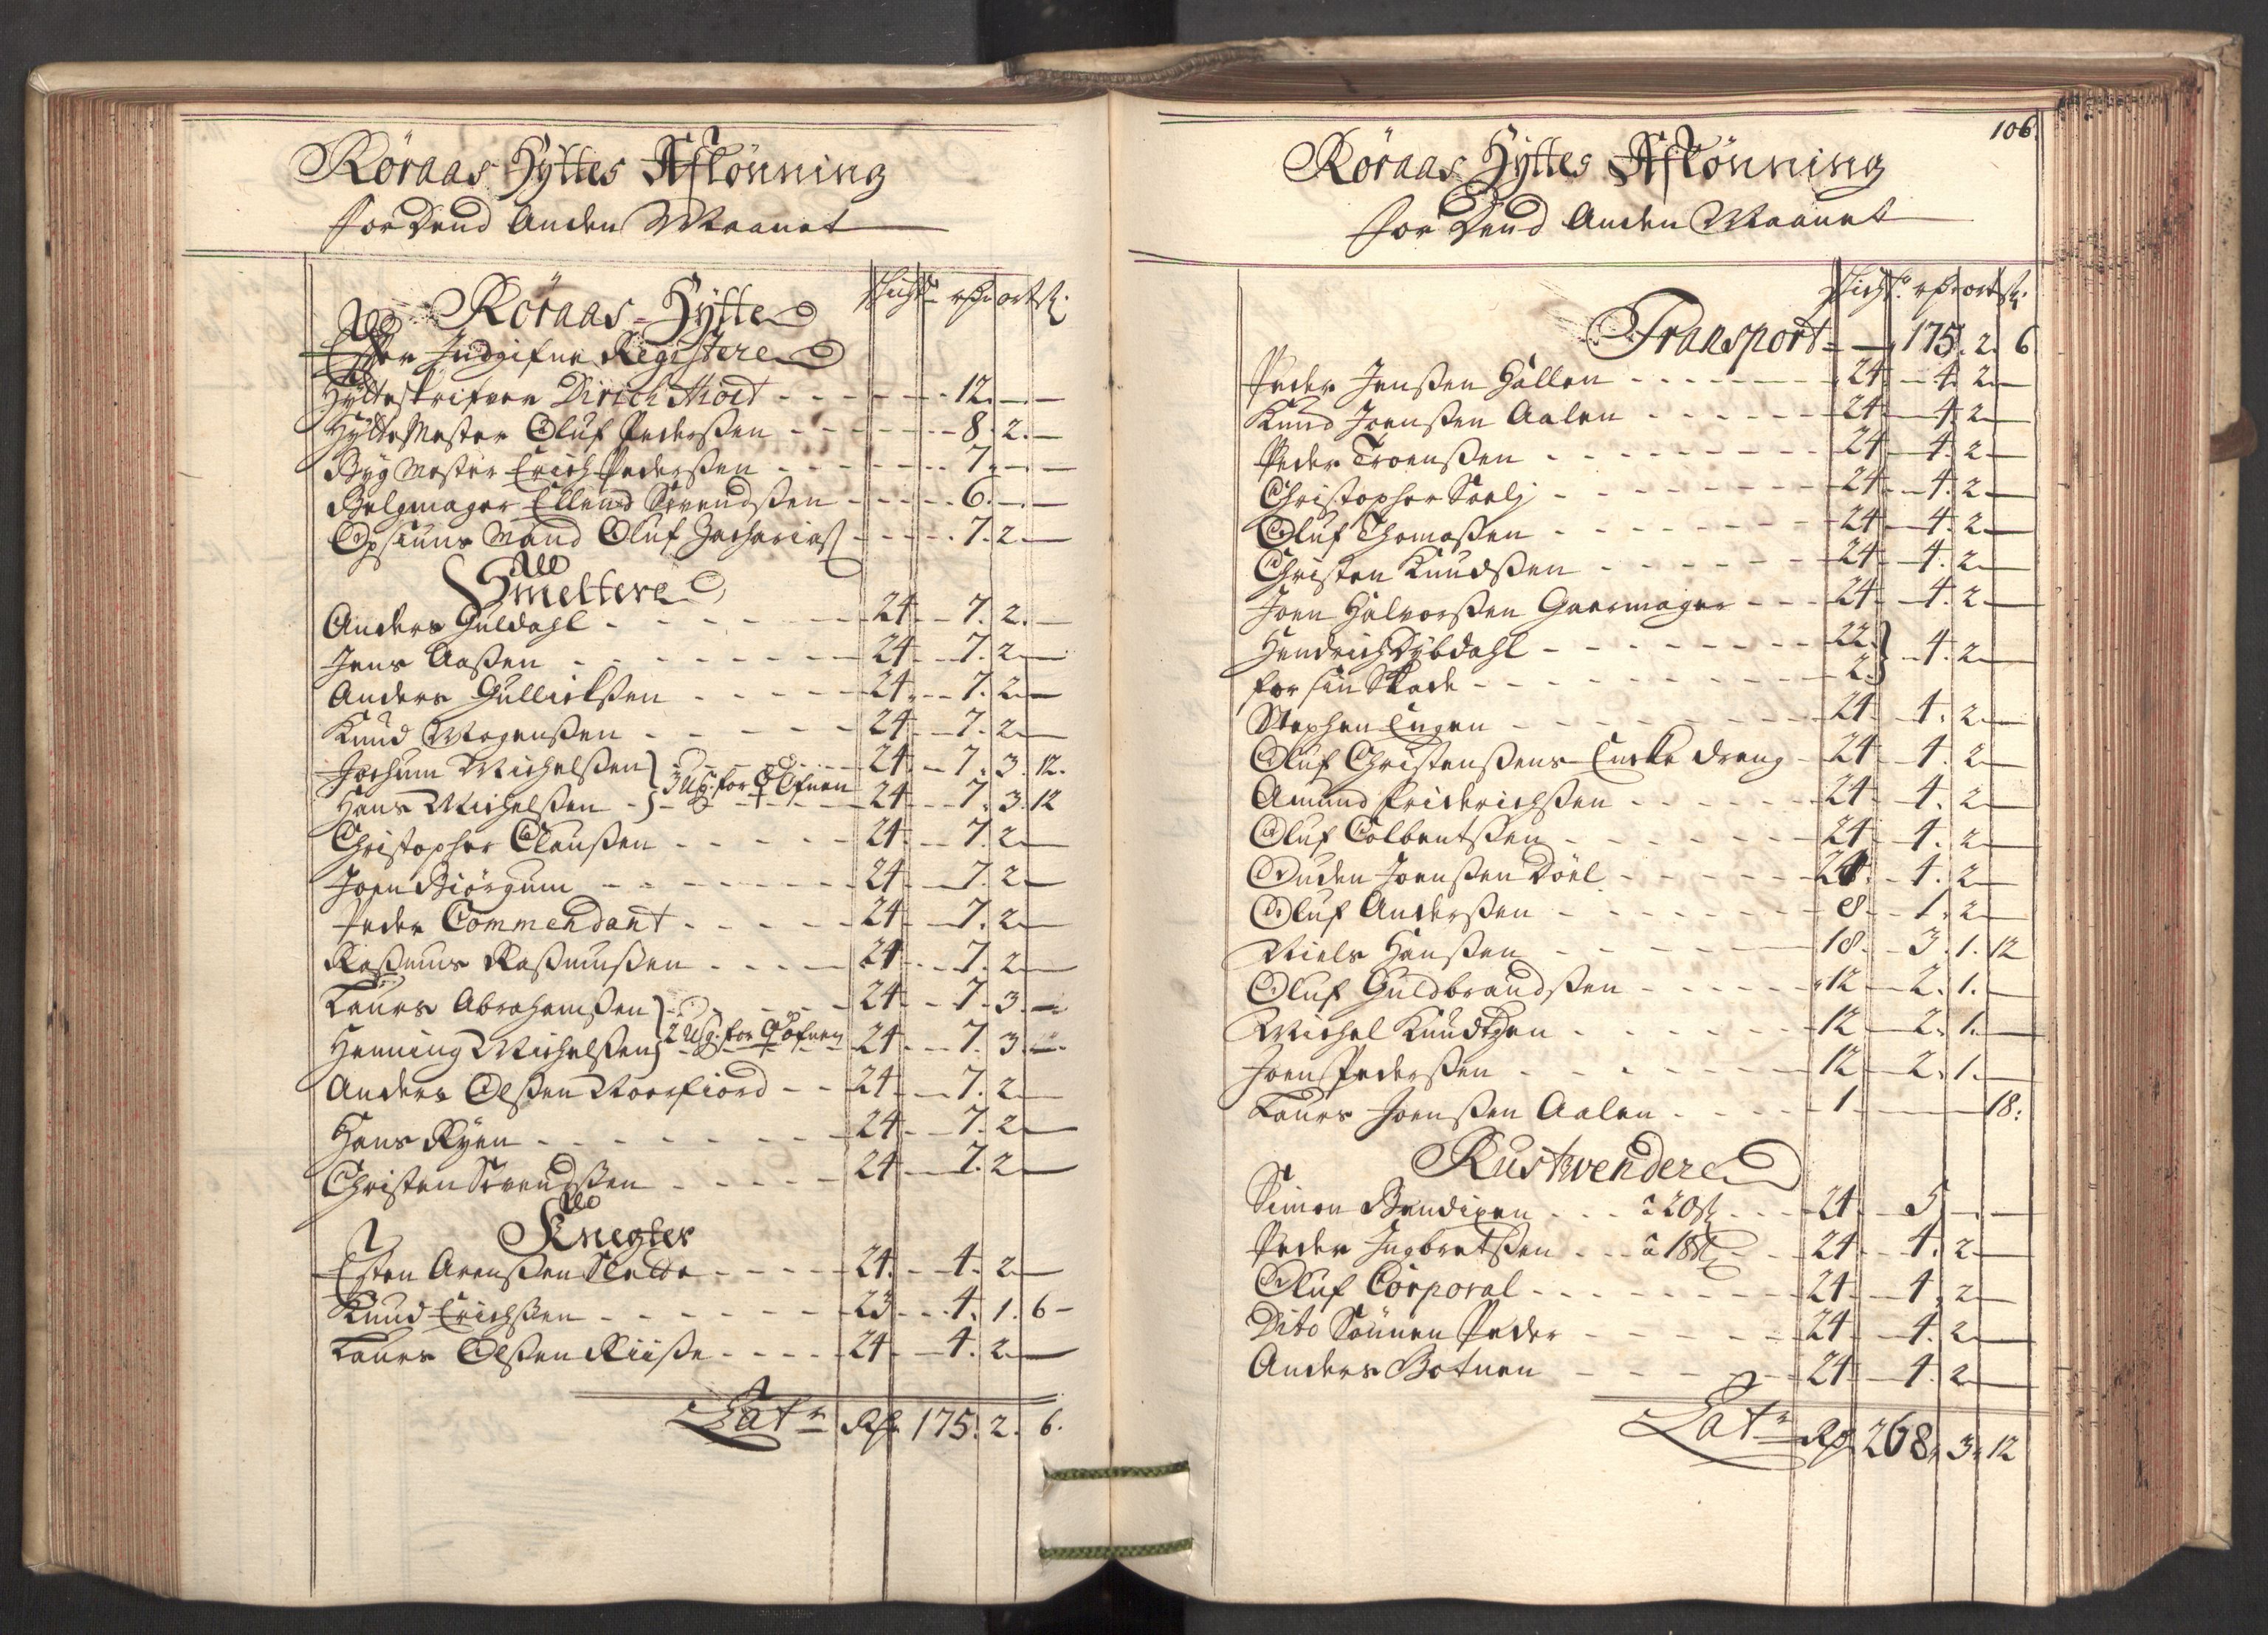 Röraas Hyttes Aflönning
for Dend Anden Maanet
Röraas Hytte
Schicht rdr ort sk.
Efter Indgifne Registere
Hÿtteskrifver Dirich - - - 12. — —
HÿtteMester Oluf Pederßen - - - 8. 2. —
Bÿg Mester Erich Pederßen - - - 7. — —
Belgmager Ellend Svendßen - - - 6. — —
Opsiuns Mand Oluf Zacharias - - - 7. 2 —
Smeltere
Anders Guldahl - - - 24 - 7. 2. —
Jens Aaßen - - - 24 - 7. 2 —
Anders Gullickßen - - - 24 - 7. 2 —
Knud Mogenßen - - - 24 - 7. 2 —
Jochum Michelßen } - - - 24 - 7. 3. 12.
3 Ug. for ♀ Ofnen
Hans Michelßen } - - - 24 - 7. 3. 12
Christopher Claußen - - - 24 - 7. 2 —
Joen Biörgum - - - 24 - 7. 2 —
Peder Commendant - - - 24 - 7. 2 —
Raßmus Raßmußen - - - 24 - 7. 2 —
Laurs Abrahamßen } - - - 24 - 7. 3 —
2 Ug. for ♀ ofnen
Henning Michelßen } - - - 24 - 7. 3 —
Anders Olßen Noerfiord - - 24 - 7. 2 —
Hans Rÿen - - - 24 - 7. 2 —
Christen Svendßen - - - 24 - 7. 2 —
Knegter
Esten Arenßen Slette - - - 24 - 4. 2 —
Knud Erichßen - - - 23 - 4. 1. 6 -
Laurs Olßen Riise - - - 24 - 4. 2 —
Lat:r Rdr 175. 2. 6.
106.
Röraas Hÿttes Aflönning
for Dend Anden Maanet
Schicht. rdr ort sk.
Transport - — 175. 2. 6
Peder Jenßen Hallen - - - 24 - 4. 2 —
Knud Joenßen Aalen - - - 24 - 4. 2 —
Peder Troenßen - - - 24 - 4. 2 —
Christopher - - - 24 - 4. 2 —
Oluf Thomaßen - - - 24 - 4. 2 —
Christen Knudßen - - - 24 - 4. 2 —
Joen Halvorßen Gaermager - - - 24 - 4. 2 —
Hendrich Dÿbdahl - - - 22. } - 4. 2 —
for sin Skade - - - 2. }
Stephen Engen - - - 24 - 4. 2 —
Oluf Christenßens Encke Dreng - 24 - 4. 2 —
Amund Friderichßen - - - 24 - 4. 2 —
Oluf Colbentßen - - - 24 - 4. 2 —
Ouden Joenßen Döel - - - 24 - 4. 2 —
Oluf Anderßen - - - 8 - 1. 2 —
Niels Hanßen - - - 18 - 3. 1. 12
Oluf Guldbrandßen - - - 12 - 2. 1. —
Michel Knudtzen - - - 12 - 2. 1. —
Joen Pederßen - - - 12 - 2. 1. —
Laurs Joenßen Aalen - - - 1 - — 18.
Rustwendere
Simon Bendixen - - - a 20 sk - - 24 - 5 — —
Peder Ingbretßen - - a 18 sk - - 24 - 4. 2 —
Oluf Corporal - - - 24 - 4. 2 —
Dito Sönnen Peder - - - 24 - 4. 2 —
Anders Botnen - - - 24 - 4. 2 —
Lat:r Rdr 268. 3. 12